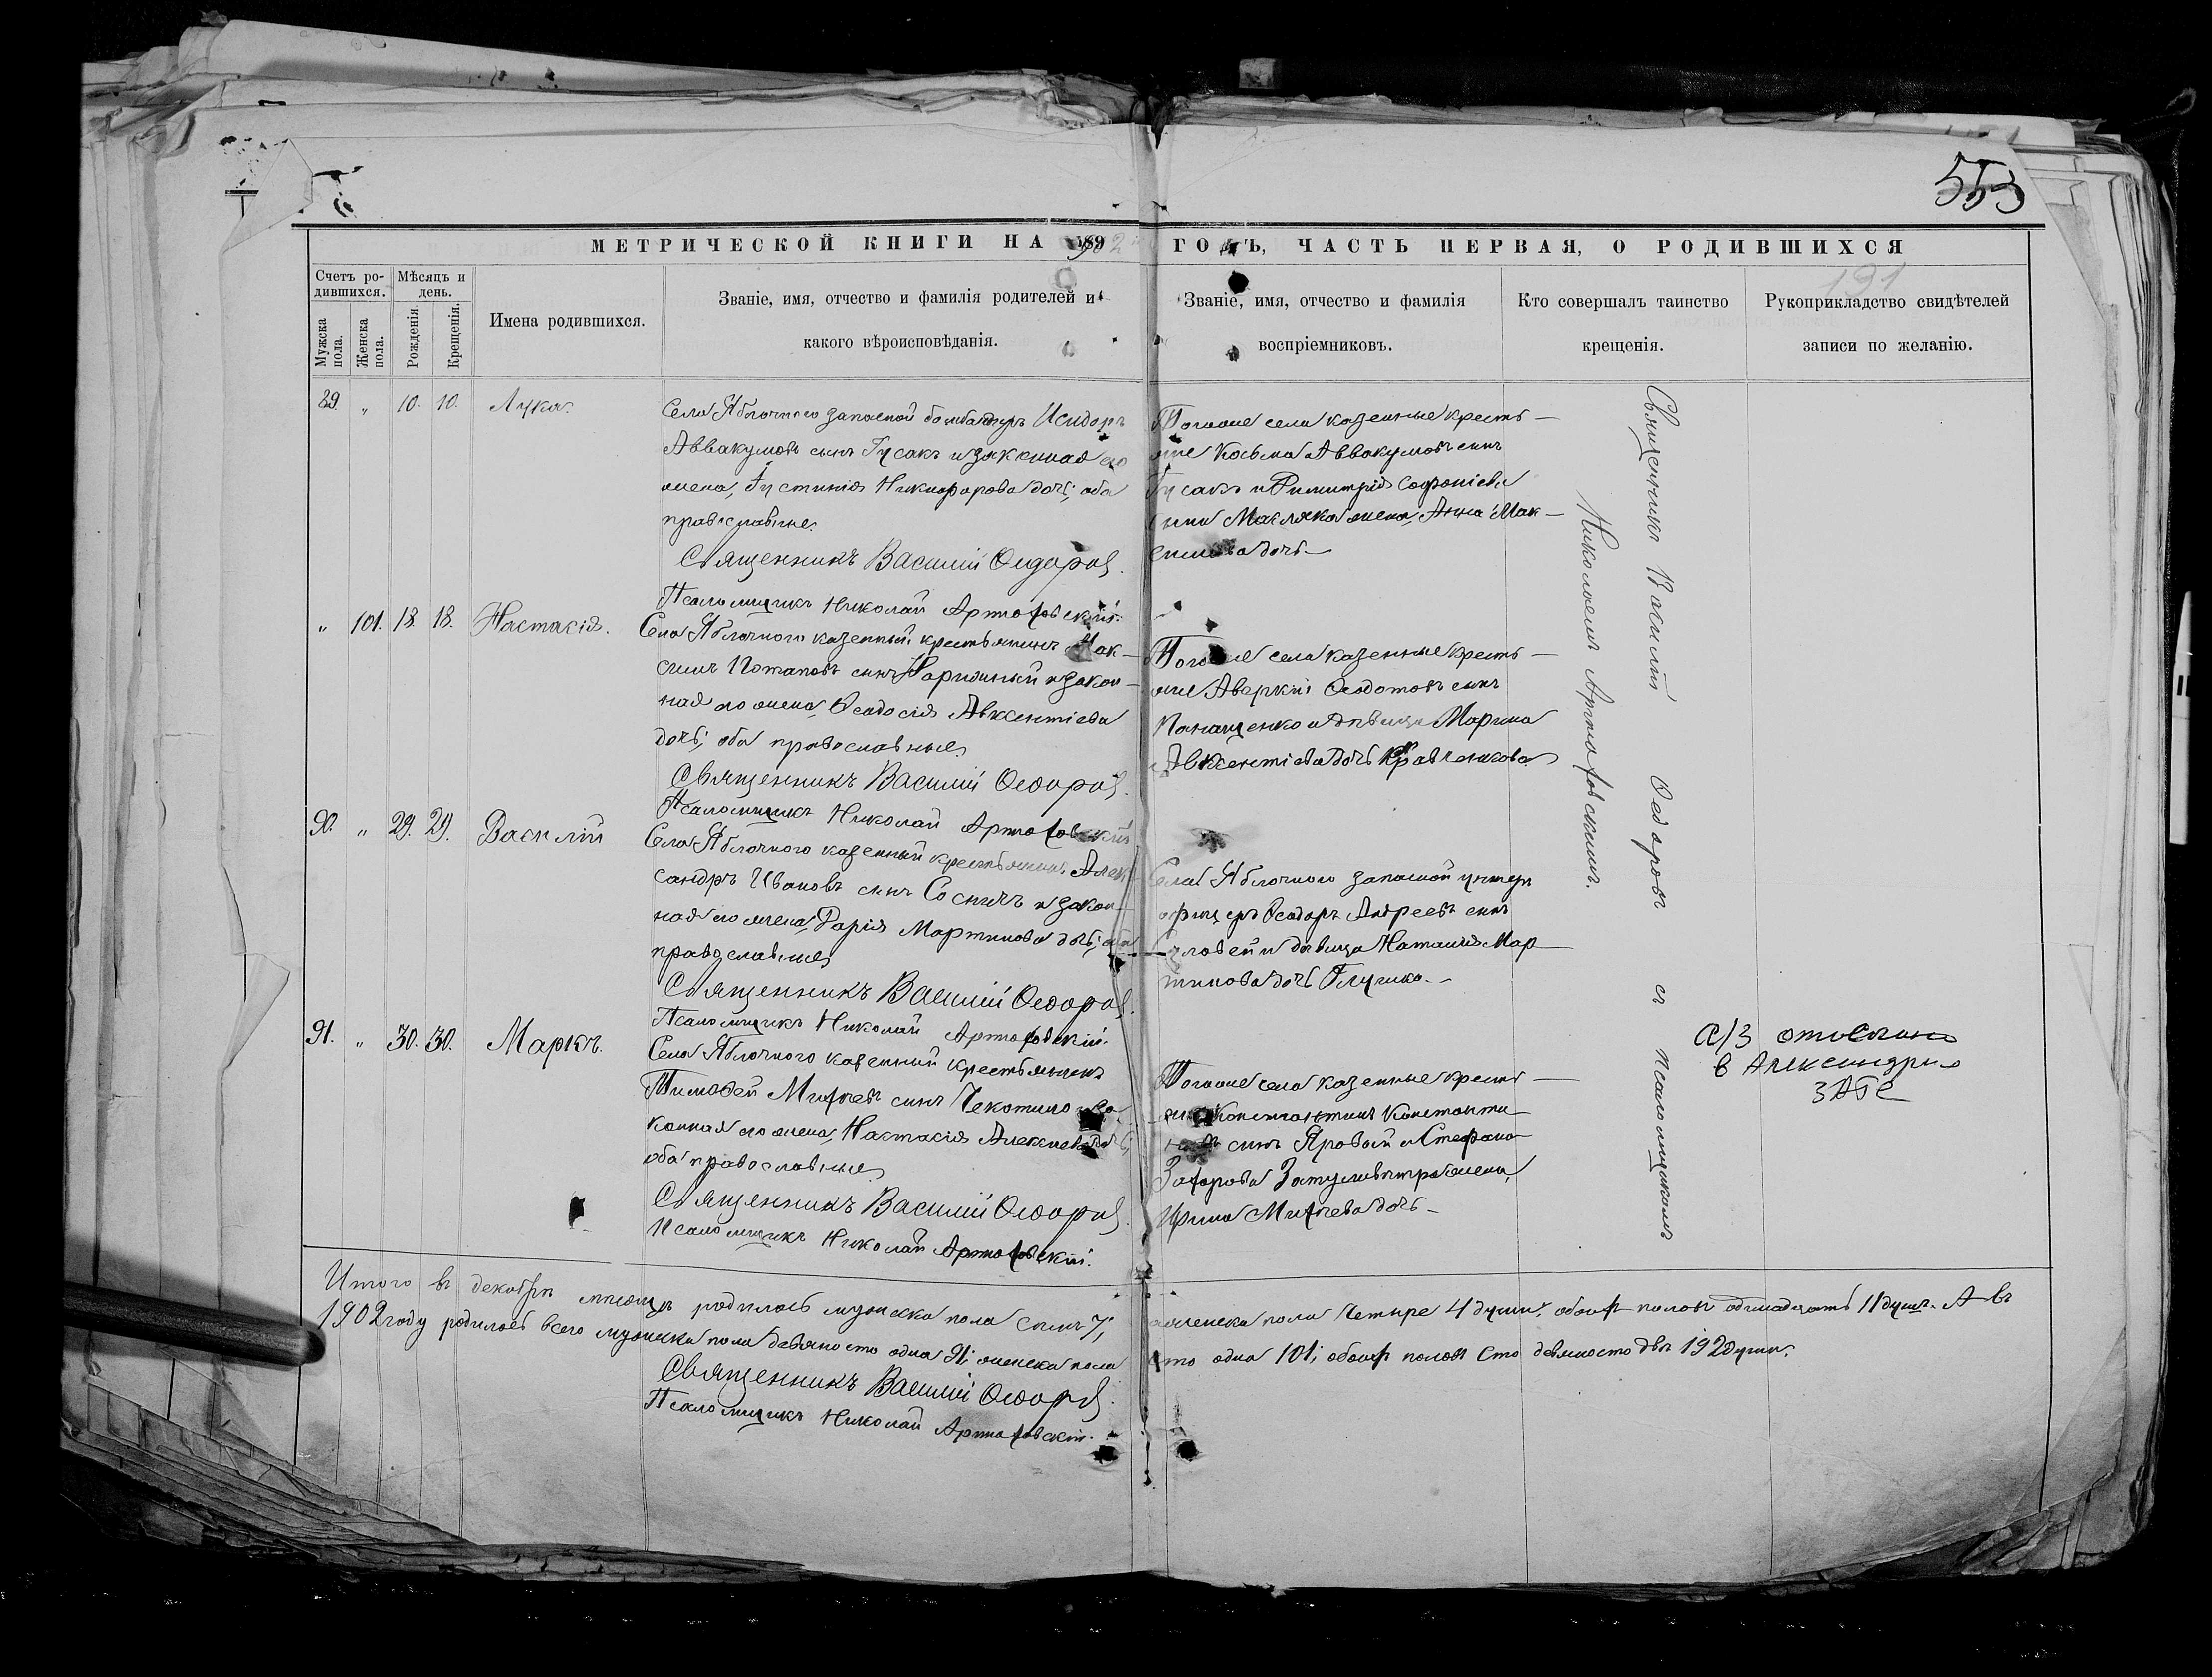 553
МЕТРИЧЕСКОЙ КНИГИ НА 1902 ГОДЪ, ЧАСТЬ ПЕРВАЯ, О РОДИВШИХСЯ
191
Счетъ ро-
дившихся.
Мужска пола.
Женска пола.
Мѣсяцъ и
день.
Рожденія.
Крещенія.
Имена родившихся.
Званіе, имя, отчество и фамилія родителей и
какого вѣроисповѣданія.
Званіе, имя, отчество и фамилія
воспріемниковъ.
Кто совершалъ таинство
крещенія.
Рукоприкладство свидѣтелей
записи по желанію.
89. „ 10. 10. Лука.
Села Яблочного запасной бомбардиръ Исидоръ
Аввакумовъ сынъ Гусакъ и законная его
жена, Іустинія Никифорова дочь; оба
православные
Священникъ Василій Ѳедоровъ.
Псаломщикъ Николай Артоховскій.
Тогоже села казенные кресть-
яне Косьма Аввакумовъ сынъ
Гусакъ и Димитрія Софоніева
сына жена, Анна Мак-
симова дочь
„ 101. 18. 18. Настасія.
Села Яблочного казенный крестьянинъ Мак-
симъ Потаповъ сынъ Нарижный и закон-
ная его жена, Ѳеодосія Авксентіева
дочь; оба православные
Священникъ Василій Ѳедоровъ.
Псаломщикъ Николай Артоховскій
Тогоже села казенные кресть-
яне Аверкій Ѳеодотовъ сынъ
Панащенко и дѣвица Марина
Авксентіева дочь Кравченкова
90. „ 29. 29. Василій
Села Яблочного казенный крестьянинъ Алек-
сандръ Ивановъ сынъ и закон-
ная его жена, Дарія Мартинова дочь; оба
православные
Священникъ Василій Ѳедоровъ.
Псаломщикъ Николай Артоховскій.
Села Яблочного запасной унтеръ
офицеръ Ѳеодоръ Андреевъ сынъ
Соловей и дѣвица Наталія Мар-
тинова дочь
91. „ 30. 30. Маркъ.
Села Яблочного казенный крестьянинъ
Тимоѳей Михѣевъ сынъ Чекотило и за-
конная его жена, Настасія Алексѣева дочь;
оба православные
Священникъ Василій Ѳедоровъ.
Псаломщикъ Николай Артоховскій.
Тогоже села казенные кресть-
яне Константинъ Константи-
новъ сынъ Яровый и Стефана
Захарова Затуливитра жена,
Ирина Михѣева дочь
Священникъ Василій Ѳедоровъ съ псаломщикомъ
Николаемъ Артоховскимъ.
а/з отослано
в Александрия
ЗАГС
Итого въ декабрѣ мѣсяцѣ родилось мужеска пола семь 7; женска пола четыре 4 души; обоихъ половъ одинадцать 11 душъ. А въ
1902 году родилось всего мужеска пола девяносто одна 91; женска пола сто одна 101; обоихъ половъ сто девяносто двѣ 192 души.
Священникъ Василій Ѳедоровъ.
Псаломщикъ Николай Артоховскій.